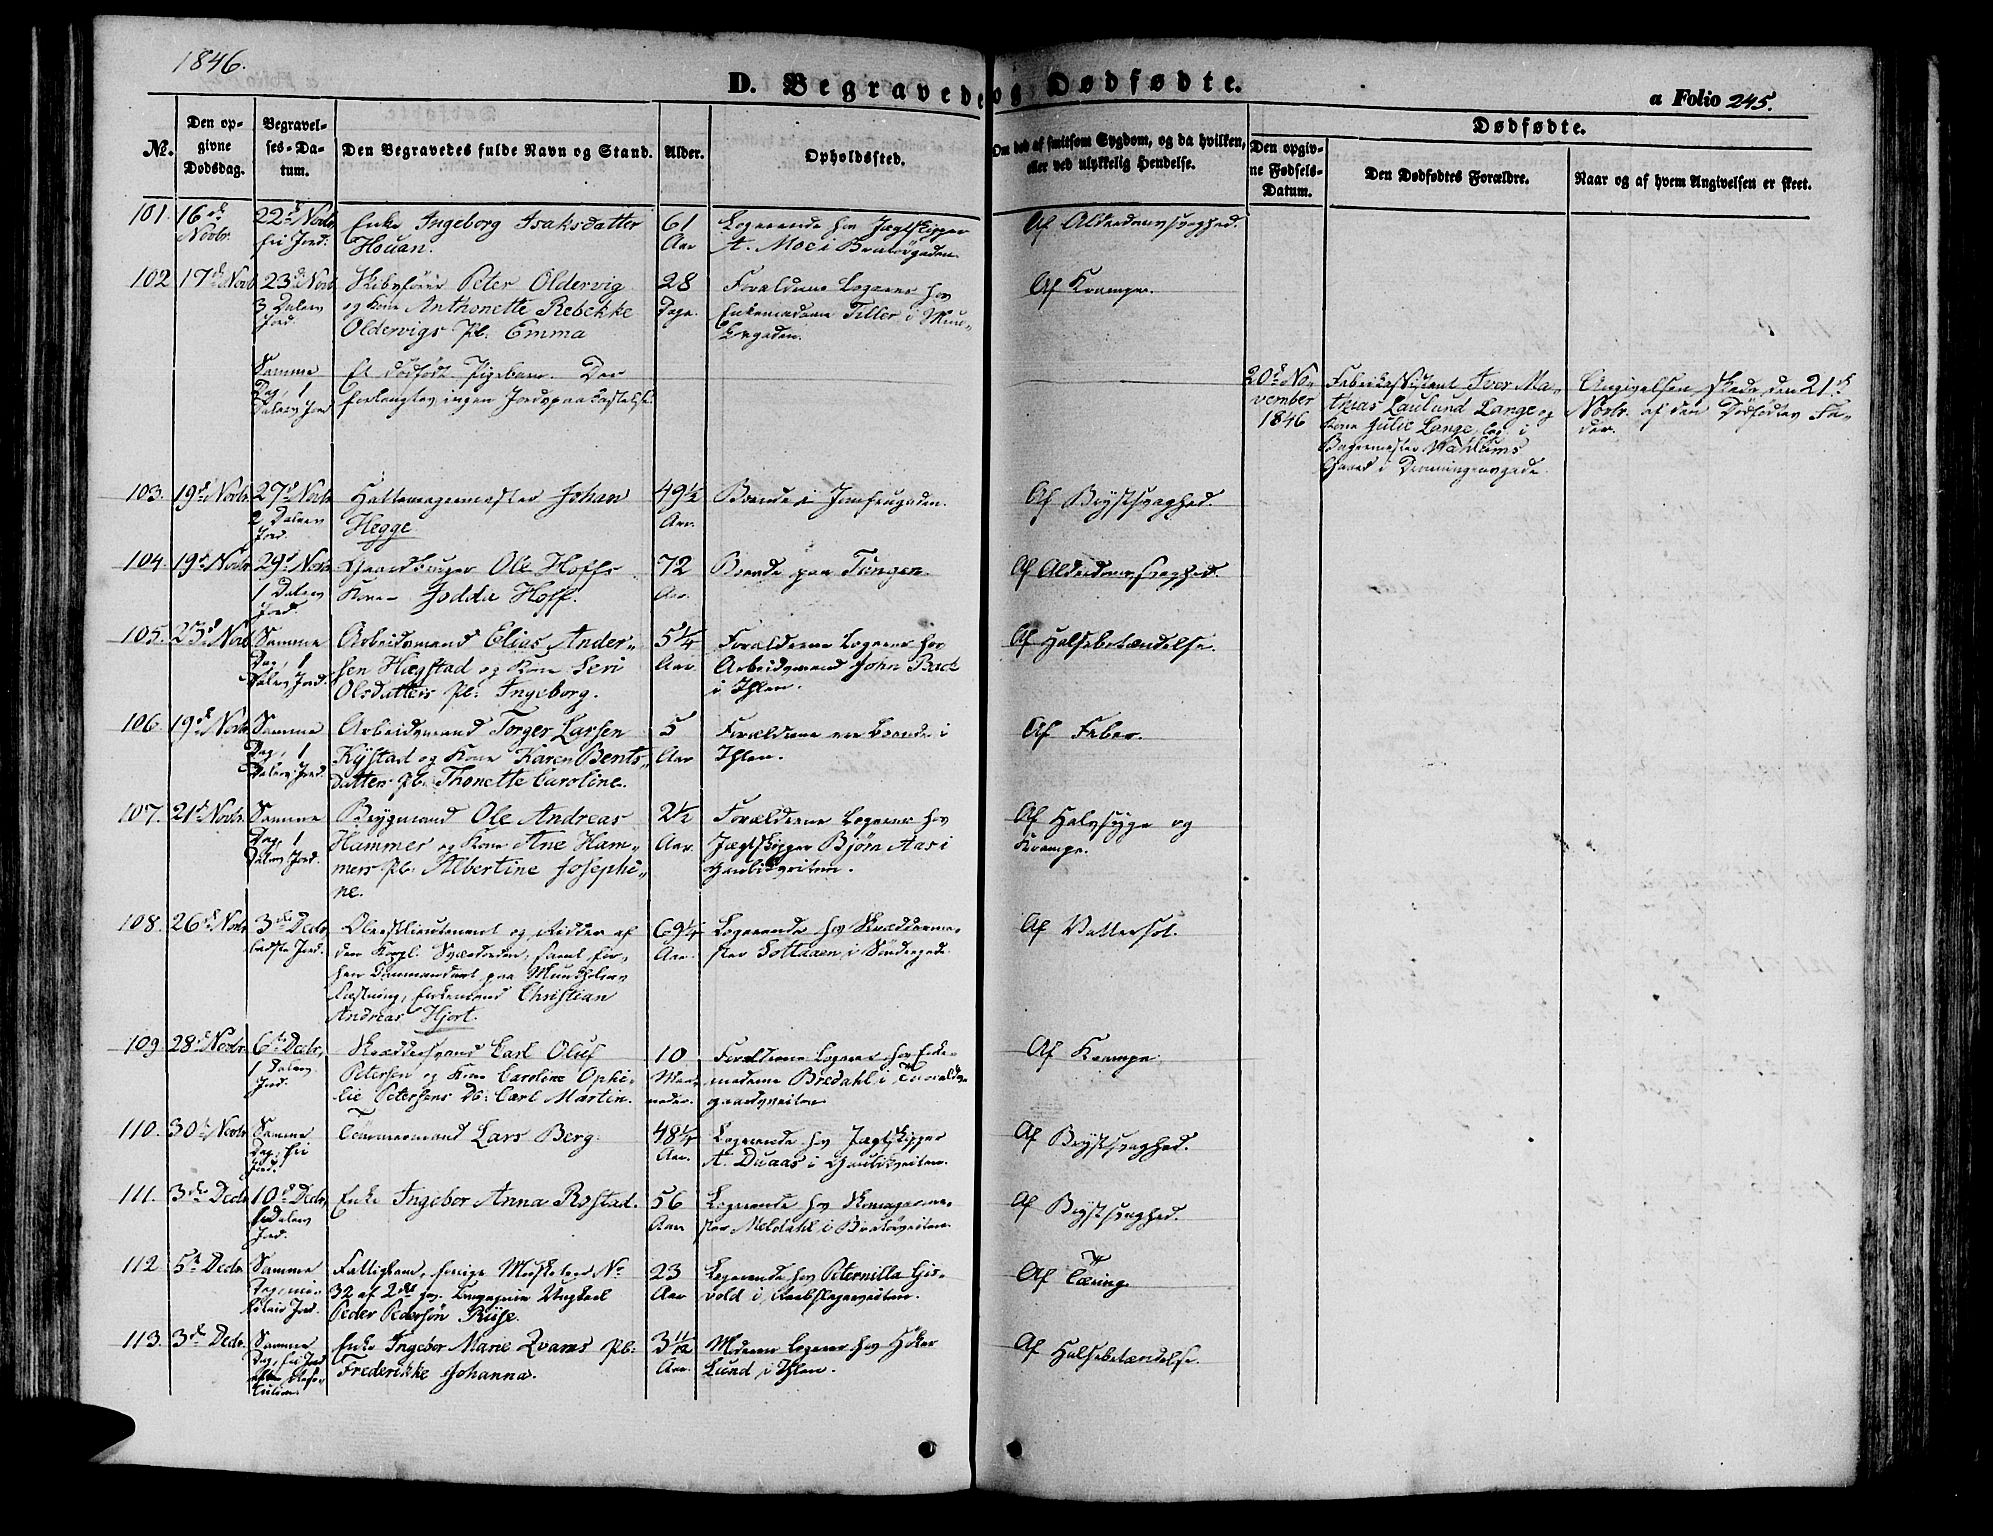 1846.
D. Begravede og Dødfødte.
a Folio 245.
No.
Den opgivne Dødsdag.
Begravelses-Datum.
Den Begravedes fulde Navn og Stand.
Alder.
Opholdssted.
Om død af smitsom Sygdom, og da hvilken, eller ved ulykkelig Hendelse.
Dødfødte.
Den opgivne Fødsels-Datum.
Den Dødfødtes Forældre.
Naar og af hvem Angivelsen er skeet.
101. 16de Novbr. 22d Novbr. fri Jord. Enke Ingeborg Isaksdatter Houan. 61 Aar Logerende hos Jægtskipper A. Moe i Bratørgaden. Af Alderdomssvaghed.
102 17de Novb. 23d Novb. 3 Dalers Jord. Skibsfører Peter Oldervig og Kone Anthonette Rebekke Oldervigs Pb. Emma 28 Dage. Forældrene Logerer hos Enkemadame Tiller i Munkegaden. Af Krampe.
Samme Dag, 1 Dalers Jord Et dødfødt Pigebarn. Der forlangtes ingen Jordpaakastelse. 20d November 1846 Iver Mathias Laulund Lange og Kone Julie Lange, log. i Bagermester Wahlums Gaard i Dronningensgade. Angivelsen skede den 21d Novbr. af den Dødfødtes Fader.
103. 19d Novbr. 27d Novbr. 2 Dalers Jord. Hattemagermester Johan Hegge. 49½ Aar. Boende i Jomfrugaden. Af Brystsvaghed.
104. 19d Novbr. 29d Novbr. 1 Dalers Jord. Ole Hoffs Kone Jodda Hoff. 72 Aar. Boende paa Tungen. Af Alderdomssvaghed.
105. 23d Novb. Samme Dag, 1 Dalers Jord. Arbeidsmand Elias Andersen Hægstad og Kone Seri Olsdatters Pb: Ingeborg. 5¼ Aar. Forældrene Logerer hos Arbeidsmand John i Ihlen. Af Halsebetændelse.
106. 19d Novbr. Samme Dag, 1 Dalers Jord. Arbeidsmand Torger Larsen Kystad og Kone Karen Bentsdatters Pb. Thonette Caroline. 5 Aar Forældrene ere boende i Ihlen. Af Feber.
107. 21d Novbr. Samme Dag, 1 Dalers Jord. Bygmand Ole Andreas Hammer og Kone Ane Hammers Pb. Albertine Josephine. 2½ Aar. Forældrene Logerer hos Jægtskipper Bjørn Aas i Gaubækveiten. Af Halssyge og Krampe.
108. 26d Novbr. 3die Decbr. bedste Jord. Oberstlieutenant og Ridder af den Kongl. Sværdorden, samt forhen Commandant paa Munkholmens Fæstning, Enkemand Christian Andreas Hjort. 69¼ Aar. Logerende hos Skræddermester i Søndregade. Af Vattersot.
109 28d Novbr. 6te Decbr. 1 Dalers Jord. Skræddersvend Carl Oluf Petersen og Kone Caroline Ophelie Petersens Db: Carl Martin. 10 Maaneder. Forældrene Logerer hos Enkemadame Bredahl i Af Krampe.
110. 30d Novbr. Samme Dag, fri Jord. Tømmermand Lars Berg. 48¼ Aar. Logerende hos Jægtskipper A. Duaas i Gaubækveiten. Af Brystsvaghed.
111. 3die Decbr. 10d Decbr. Dalers Jord. Enke Ingebor Anna Røstad. 56 Aar Logerende hos Skomagermester Meldahl i Bratørveiten. Af Brystsvaghed.
112 5te Decbr. Samme Dag, Jord. Fattiglem, forrige Musketeer No 32 af 2det Peder Pedersøn Riise. 23 Aar Logerende hos Peternilla Gisvold i Reebslagerveiten. Af Tæring.
113. 3die Decbr. Samme Dag, fri Jord Enke Ingebor Marie Pb: Frederikke Johanna. 3 11/12 Aar. Moderen Logerer hos Høker Lund i Ihlen. Af Halsebetændelse.